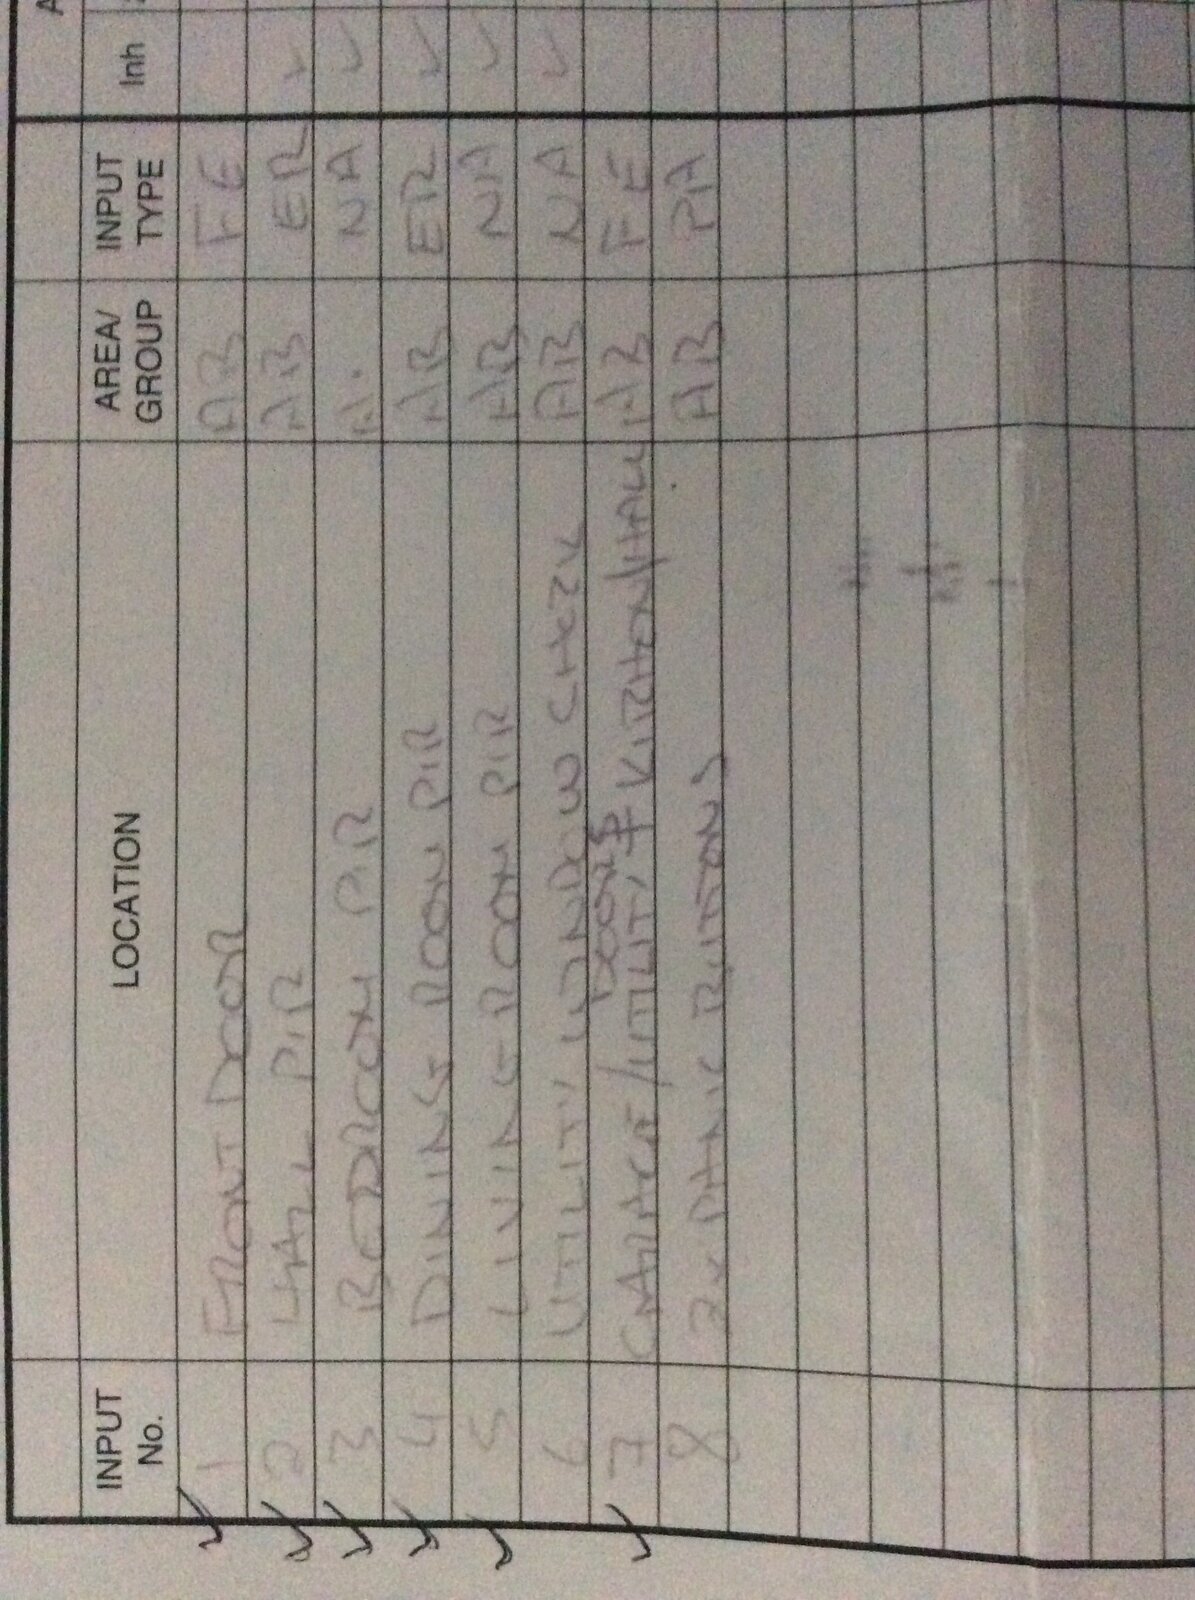 INPUT No. LOCATION AREA/ GROUP INPUT TYPE Inh
1 FRONT DOOR AB FE
2 HALL PIR AB ER ✓
3 BEDROOM PIR A. NA ✓
4 DINING ROOM PIR AB ER ✓
5 LIVING ROOM PIR AB NA ✓
6 UTILITY WINDOW AB NA ✓
DOORS
7 GARAGE/UTILITY + KITCHEN/HALL AB FE
8 2x PANIC BUTTONS AB PA